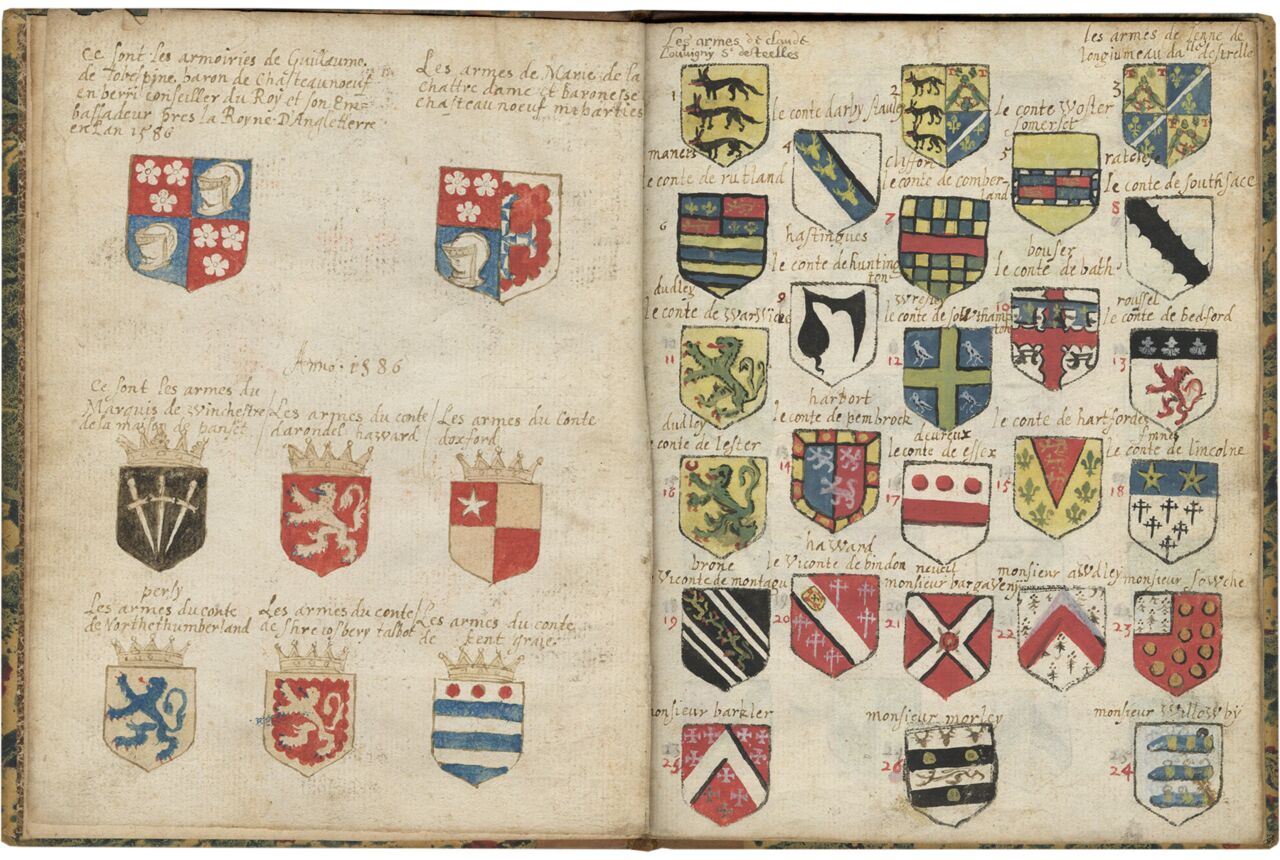 Ce sont les armoiries de Guillaume
de lobespine baron de Chasteauneuf
en berri conseiller du Roy et son Em=
bassadeur pres la Royne D'Angleterre
en Lan 1586
Les armes de Marie de la
Chattre dame et baronesse
chasteauneuf miparties
Anno. 1586
Ce sont les armes du
Marquis de Winchestre
de la maison de panset
Les armes du conte
darondel haward
Les armes du Conte
doxford
persy
Les armes du conte
de Northethumberland
Les armes du conte
de shreiosbery talbot
Les armes du conte
de kent graie
Les armes de claude
Louvigny Sr destrelles
les armes de Jenne de
longiumeau da destrelle
1
2
3
le conte darby stanley
le conte Woster
somerset
maners
le conte de rutland
4
clifford
le conte de comber-
land
5
ratclefe
le conte de southsace
6
7
8
hastingues
le conte de hunting
ton
bouser
le conte de bath
dudley
le conte de warwick
9
le conte de sowthamp
ton
10
roussel
le conte de bedford
11
12
13
harbort
le conte de pembrock
le conte de hartforde
dudley
le conte de lester
deureux
le conte de essex
le conte de lincolne
14
15
16
17
18
haward
le viconte de bindon
brone
viconte de montagu
neuell
monsieur bargaveny
monsieur awdley
monsieur sowche
19
20
21
22
23
monsieur barkler
monsieur morley
monsieur willowby
25
26
24